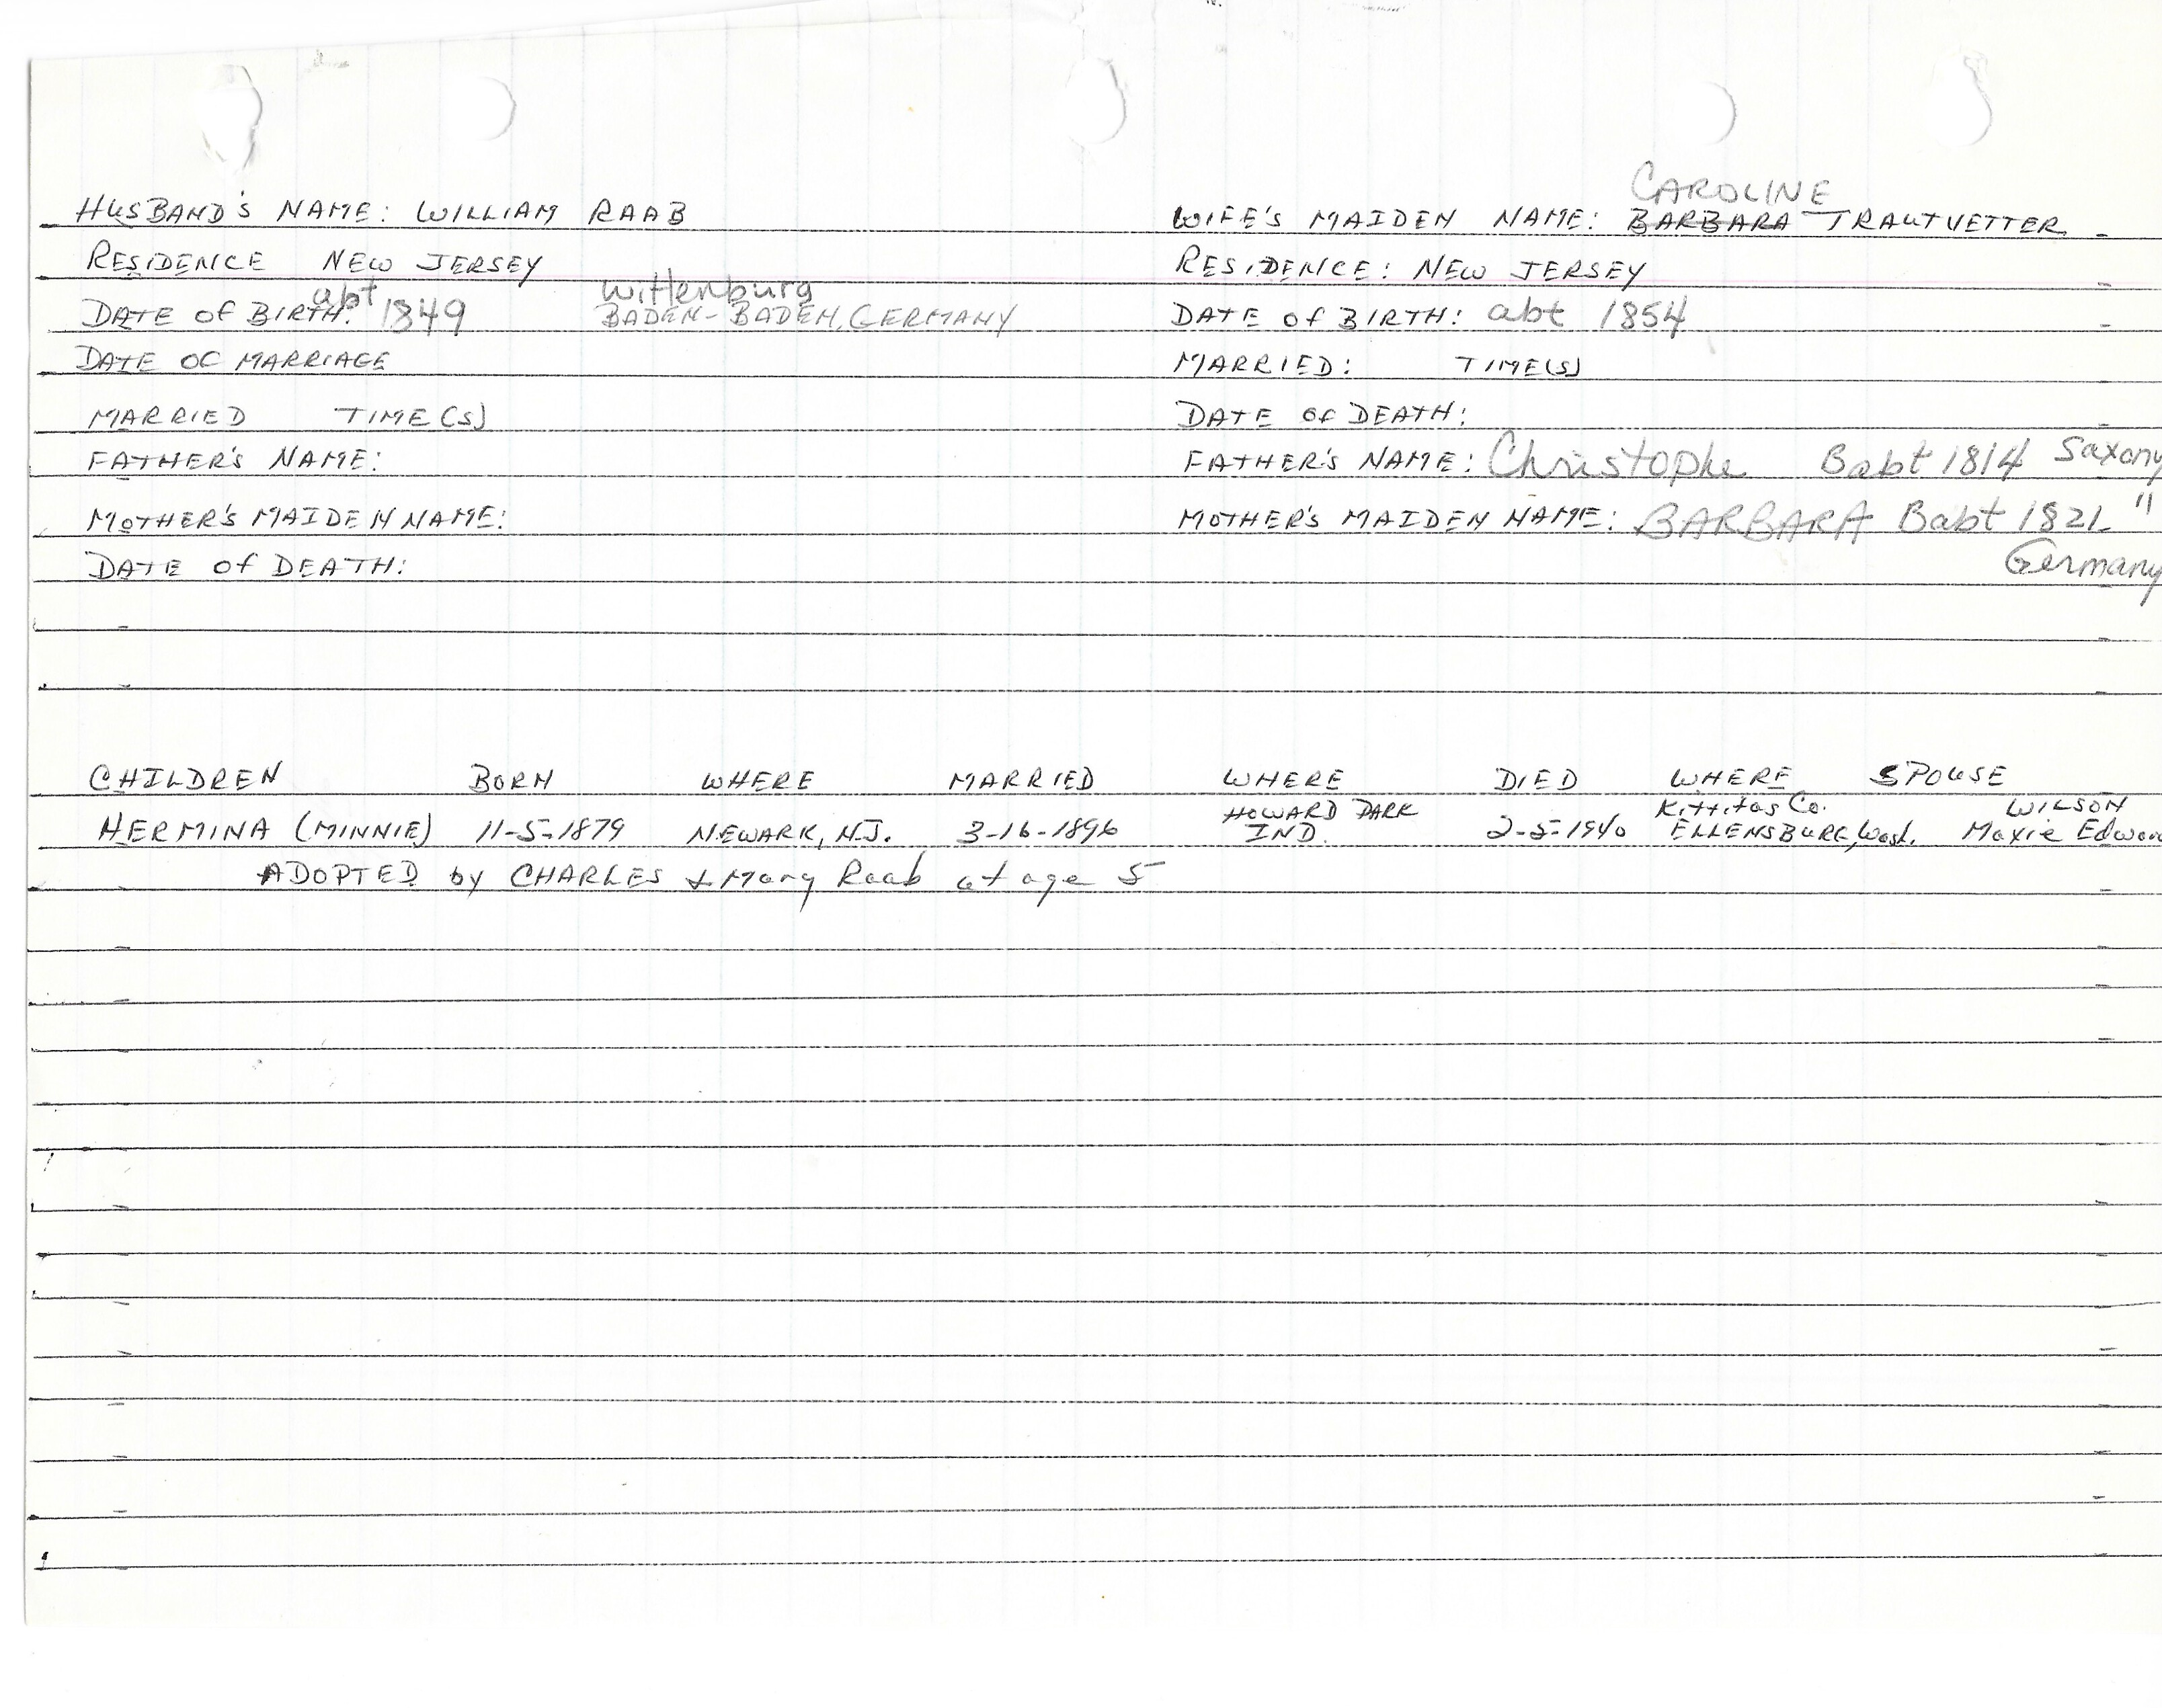 CAROLINE
HUSBAND'S NAME: WILLIAM RAAB WIFE'S MAIDEN NAME: BARBARA TRAUTVETTER
RESIDENCE NEW JERSEY RESIDENCE: NEW JERSEY
abt Wittenburg
DATE of BIRTH: 1849 BADEN-BADEN, GERMANY DATE of BIRTH: abt 1854
DATE OF MARRIAGE MARRIED: TIME(S)
MARRIED TIME(S) DATE of DEATH:
FATHER'S NAME: FATHER'S NAME: Christophe B abt 1814 Saxony
MOTHER'S MAIDEN NAME: MOTHER'S MAIDEN NAME: BARBARA B abt 1821 "
DATE of DEATH: Germany
CHILDREN BORN WHERE MARRIED WHERE DIED WHERE SPOUSE
HOWARD PARK Kittitas Co. WILSON
HERMINA (MINNIE) 11-5-1879 NEWARK, N.J. 3-16-1896 IND. 2-5-1940 ELLENSBURG, Wash. Maxie Edwar
ADOPTED by CHARLES & Mary Raab at age 5